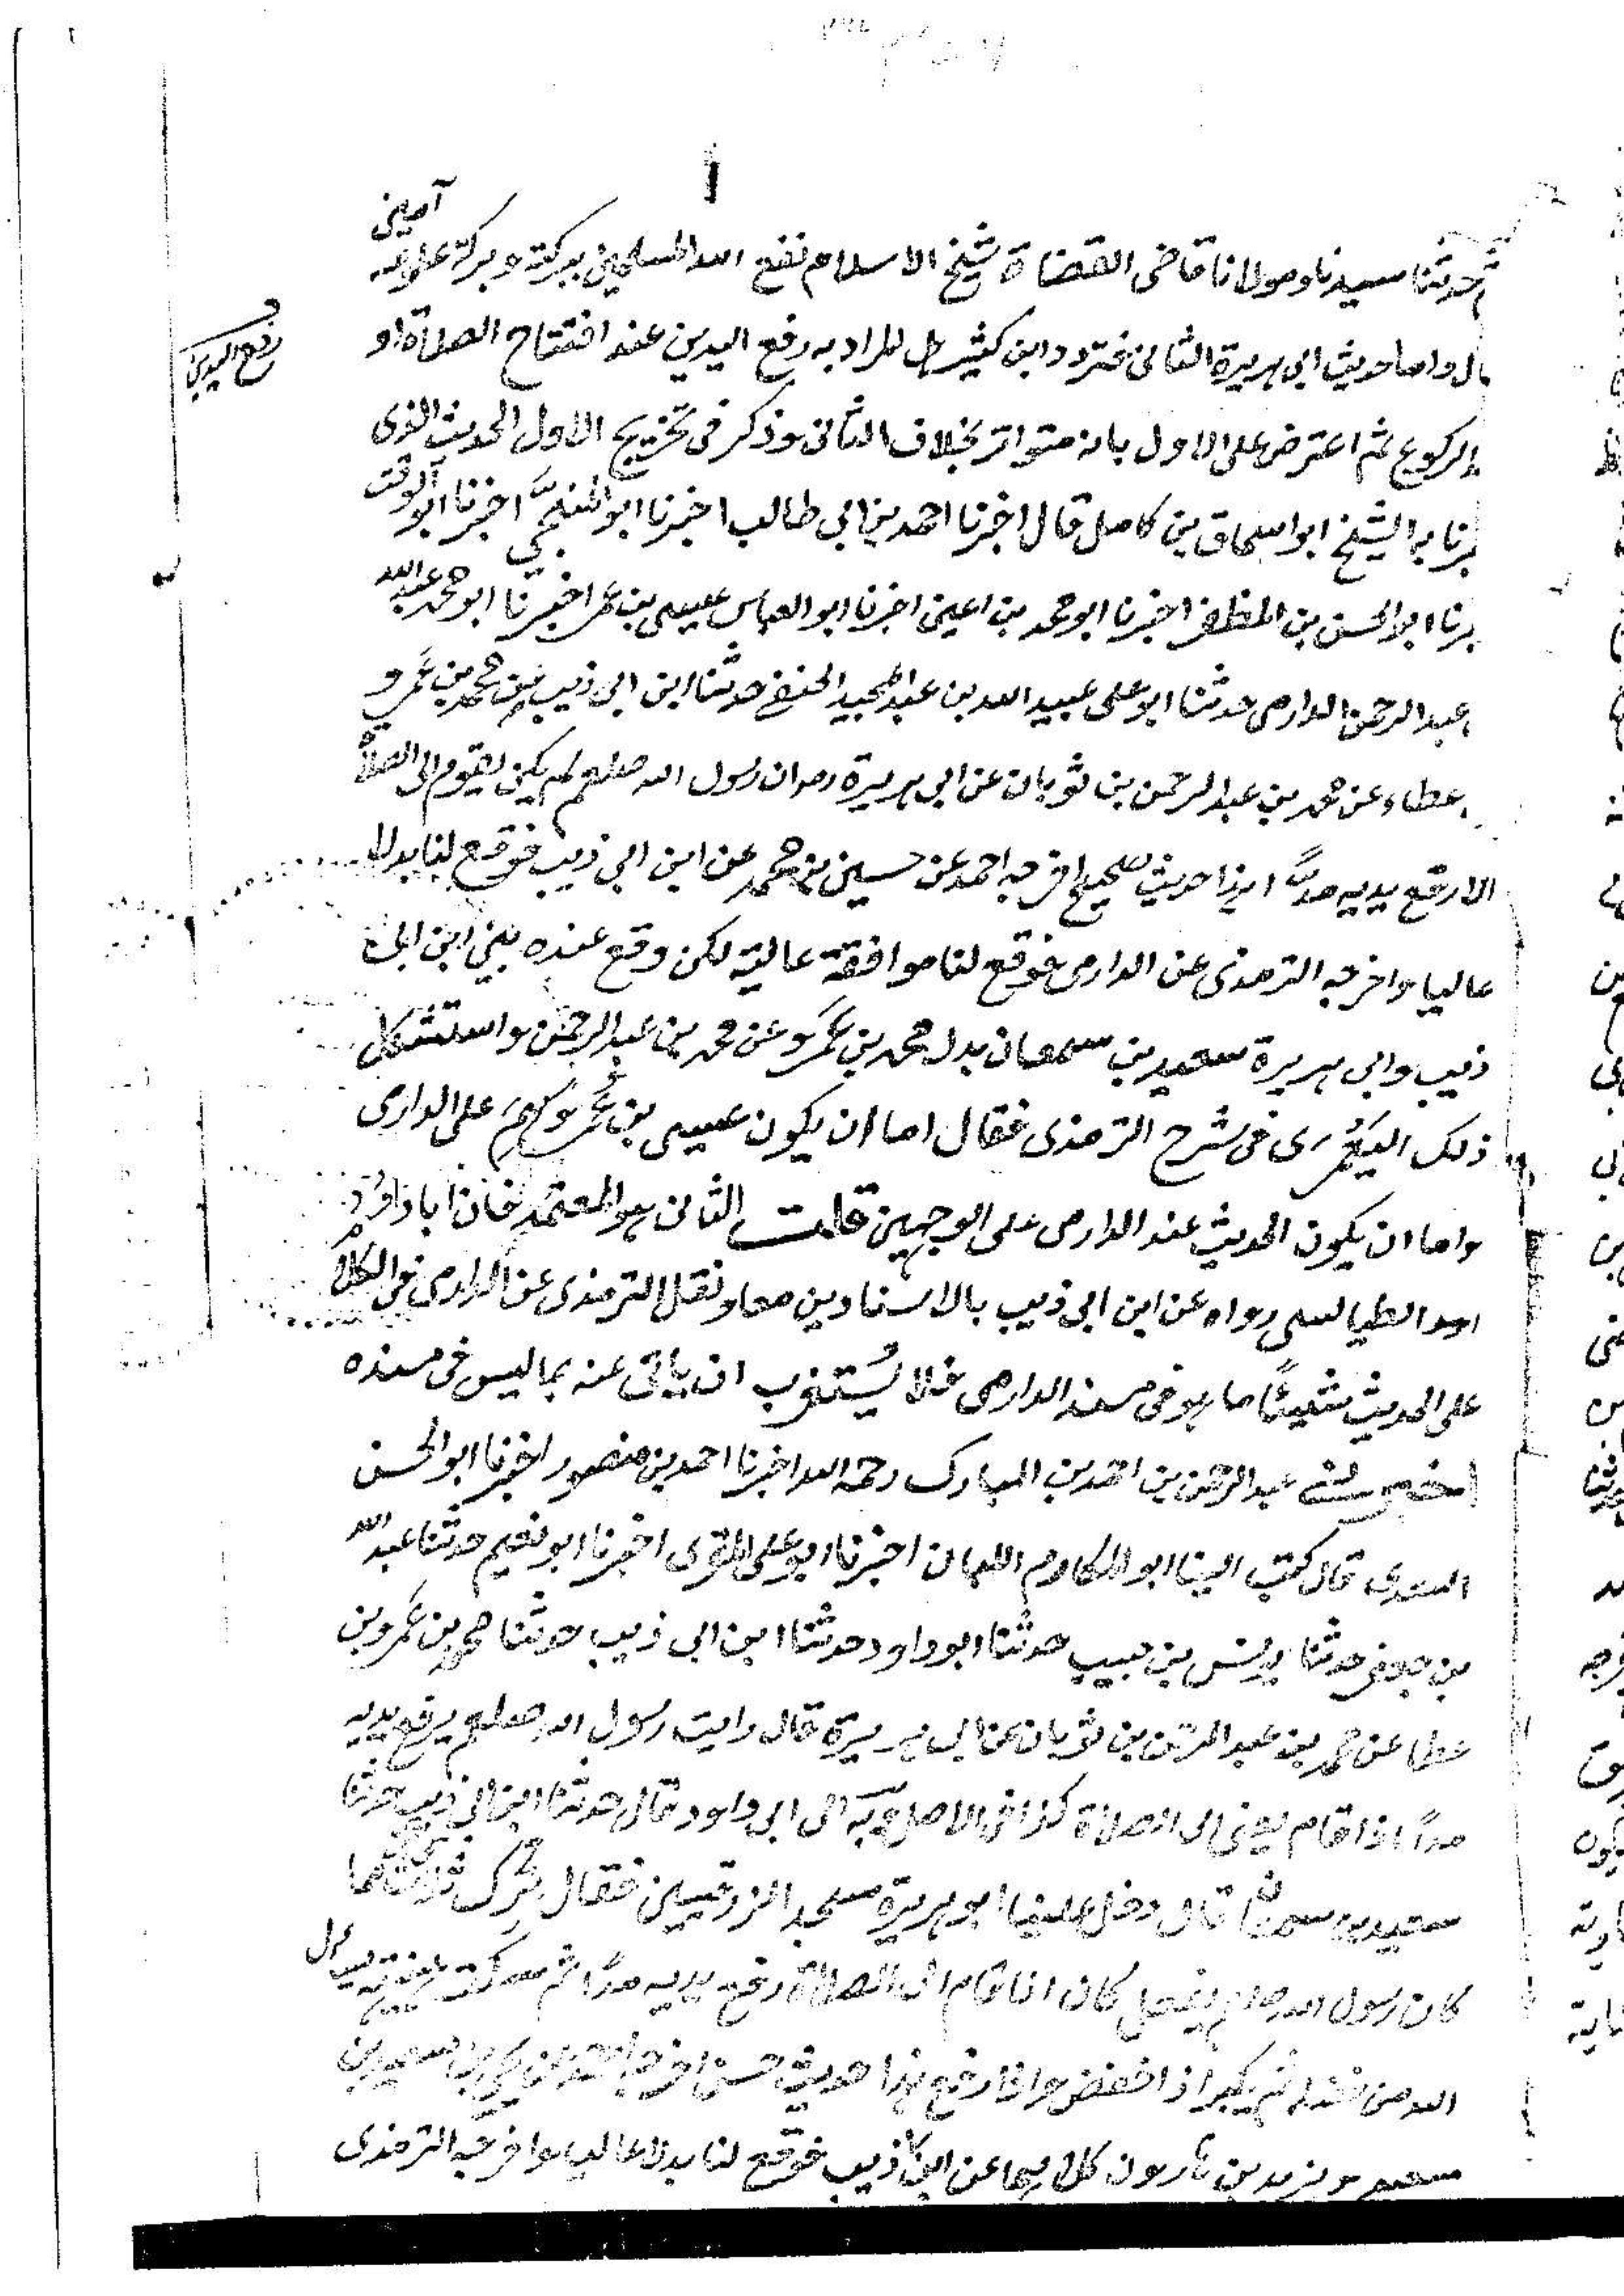 آمين
ثم حدثنا سيدنا ومولانا قاضى القضاة شيخ الاسلام نفع الله المسلمين ببركته وبركة علومه
قال واما حديث ابى هريرة الثانى فتردد ابن كثير هل المراد به رفع اليدين عند افتتاح الصلاة او
رفع اليدين
الركوع ثم اعترض على الاول بانه متواتر بخلاف الثانى وذكر فى تخريج الاول الحديث الذى
برنا به الشيخ ابو اسحاق بن كامل قال اخبرنا احمد بن ابى طالب اخبرنا ابو المنجى اخبرنا ابو الوقت
برنا ابو الحسن بن المظفر اخبرنا ابو محمد بن اعين اخبرنا ابو العباس عيسى بن عمر اخبرنا ابو محمد عبد الله
عبد الرحمن الدارمى حدثنا ابو على عبيد الله بن عبد المجيد الحنفى حدثنا ابن ابى ذيب عن محمد بن عمرو
عطاء عن محمد بن عبد الرحمن بن ثوبان عن ابى هريرة رضه ان رسول الله صلعم لم يكن يقوم الى الصلاة
الا رفع يديه مدًّا هذا حديث صحيح اخرجه احمد عن حسين بن محمد عن ابن ابى ذيب فوقع لنا بدلا
عاليا واخرجه الترمذى عن الدارمى فوقع لنا موافقة عالية لكن وقع عنده بين ابن ابى
ذيب وابى هريرة سعيد بن سمعان بدل محمد بن عمرو عن محمد بن عبد الرحمن واستشكل
ذلك اليعمرى فى شرح الترمذى فقال اما ان يكون عيسى بن عمر وهم على الدارمى
واما ان يكون الحديث عند الدارمى على الوجهين قلت الثانى هو المعتمد فان ابا داود
الطيالسى رواه عن ابن ابى ذيب بالاسنادين معا ونقل الترمذى عن الدارمى فى الكلام
على الحديث شيئًا ما هو فى مسند الدارمى فلا يُستغرب ان ياتى عنه بما ليس فى مسنده
اخبرنى عبد الرحمن بن احمد بن المبارك رحمه الله اخبرنا احمد بن منصور اخبرنا ابو الحسن
السعدى قال كتب الينا ابو المكارم اللبان اخبرنا ابو على المقرى اخبرنا ابو نعيم حدثنا عبد الله
بن جعفر حدثنا يونس بن حبيب حدثنا ابو داود حدثنا ابن ابى ذيب حدثنا محمد بن عمرو بن
عطا عن محمد بن عبد الرحمن بن ثوبان عن ابى هريرة قال رايت رسول الله صلعم يرفع يديه
مدًا اذا قام يعنى الى الصلاة كذا فى الاصل وبه الى ابى داود قال حدثنا ابن ابى ذيب حدثنا
سعيد بن سمعان قال دخل علينا ابو هريرة مسجد الزرقيين فقال ترك
كان رسول الله صلعم يفعل كان اذا قام الى الصلاة رفع يديه مدًا ثم سكت هنيهة يسال
الله من فضله ثم يكبر اذا خفض واذا رفع هذا حديث حسن اخرجه احمد عن يحيى بن سعيد بن
سعيد ويزيد بن هارون كلاهما عن ابن ابى ذيب فوقع لنا بدلا عاليا واخرجه الترمذى